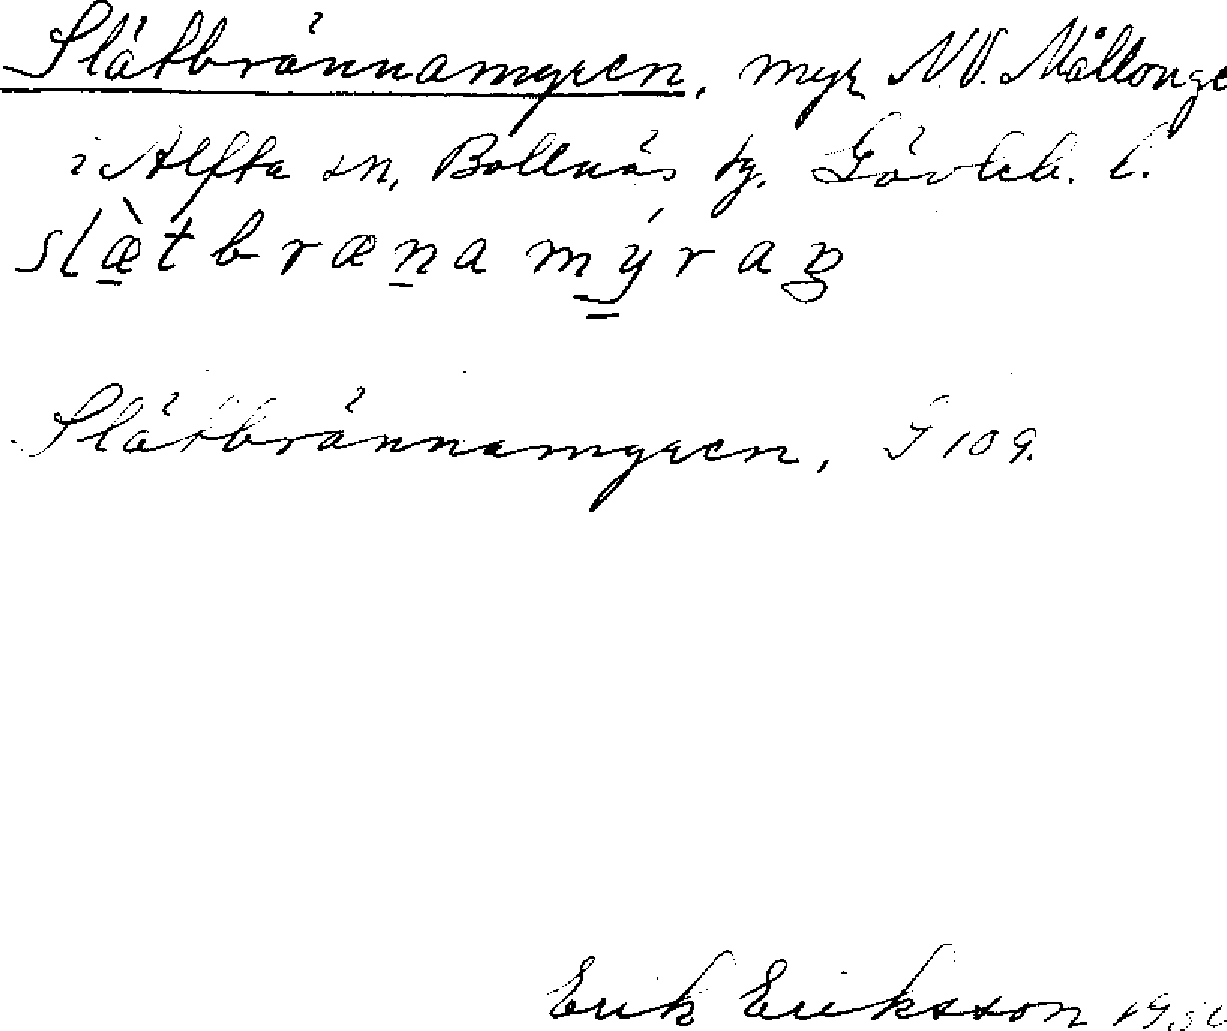 Slätbrännamyren, myr NV. Mållånge
i Alfta sn, Bollnäs tg, Gävleb. l.
slæ̀tbrænamýraŋ
Slätbrännamyren, J 109.
Erik Eriksson